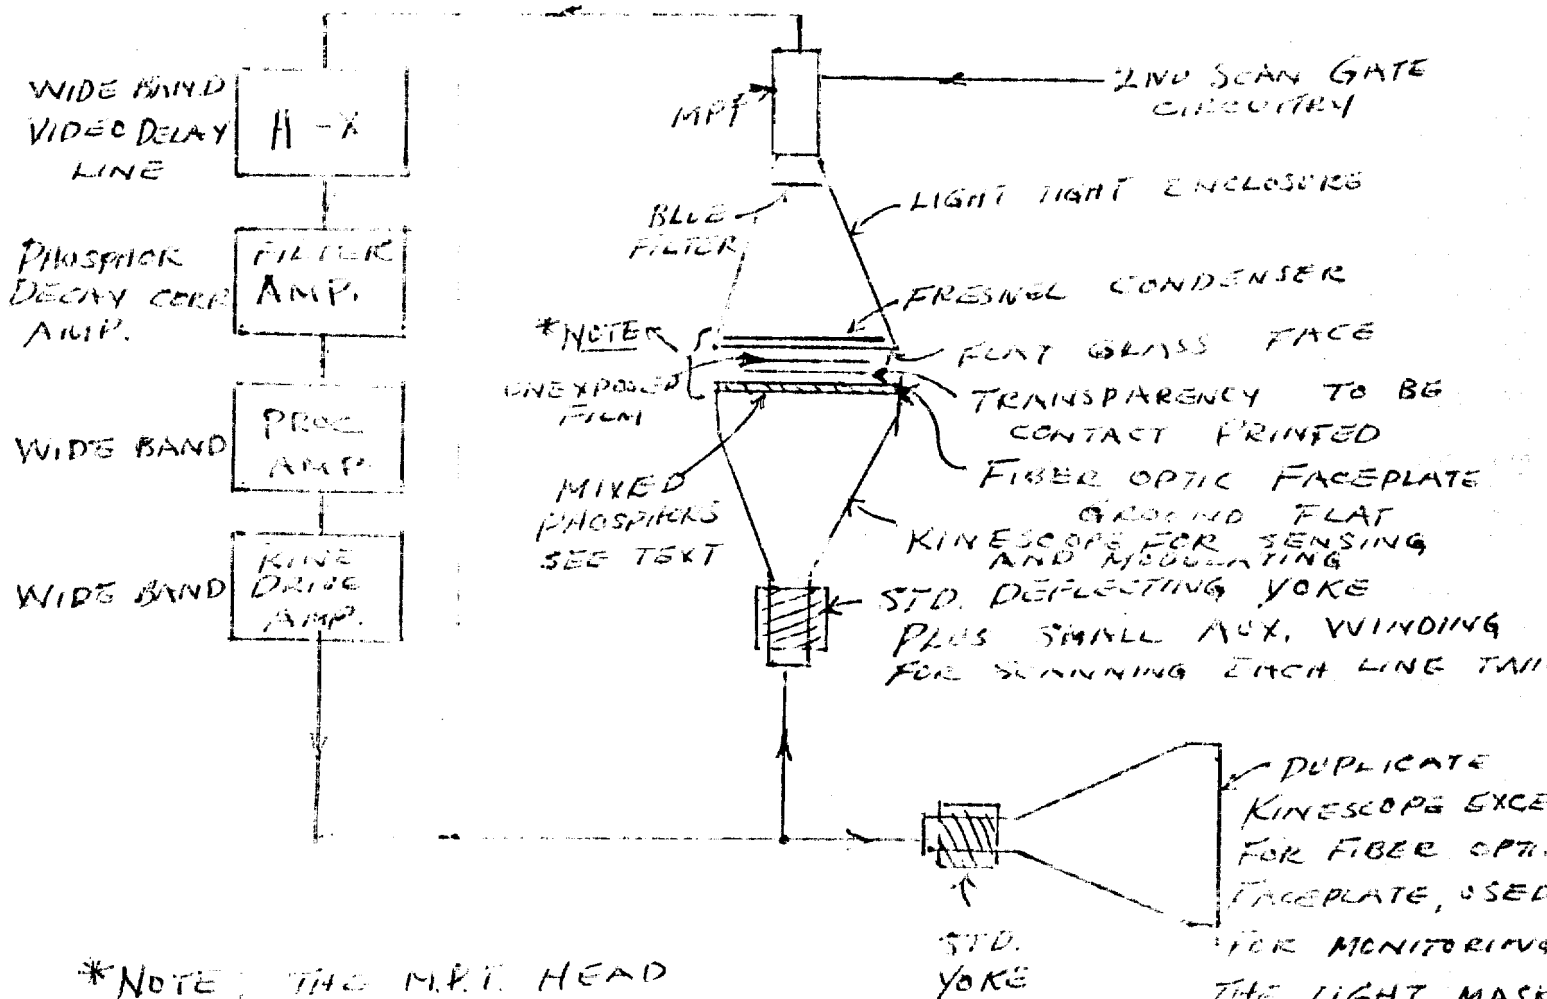 WIDE BAND
VIDEO DELAY
LINE
H-X
PHOSPHOR
DECAY CORR
AMP.
FILTER
AMP.
WIDE BAND
PROC
AMP.
WIDE BAND
KINE
DRIVE
AMP.
MPT
2ND SCAN GATE
CIRCUITRY
BLUE
FILTER
LIGHT TIGHT ENCLOSURE
FRESNEL CONDENSER
*NOTE
FLAT GLASS FACE
UNEXPOSED
FILM
TRANSPARENCY TO BE
CONTACT PRINTED
FIBER OPTIC FACEPLATE
GROUND FLAT
MIXED
PHOSPHORS
SEE TEXT
KINESCOPE FOR SENSING
AND MODULATING
STD. DEFLECTING YOKE
PLUS SMALL AUX. WINDING
FOR SCANNING EACH LINE
DUPLICATE
KINESCOPE EXCE
FOR FIBER OPTI
FACEPLATE, USED
FOR MONITORING
THE LIGHT MASK
STD.
YOKE
*NOTE: THE M.P.T. HEAD